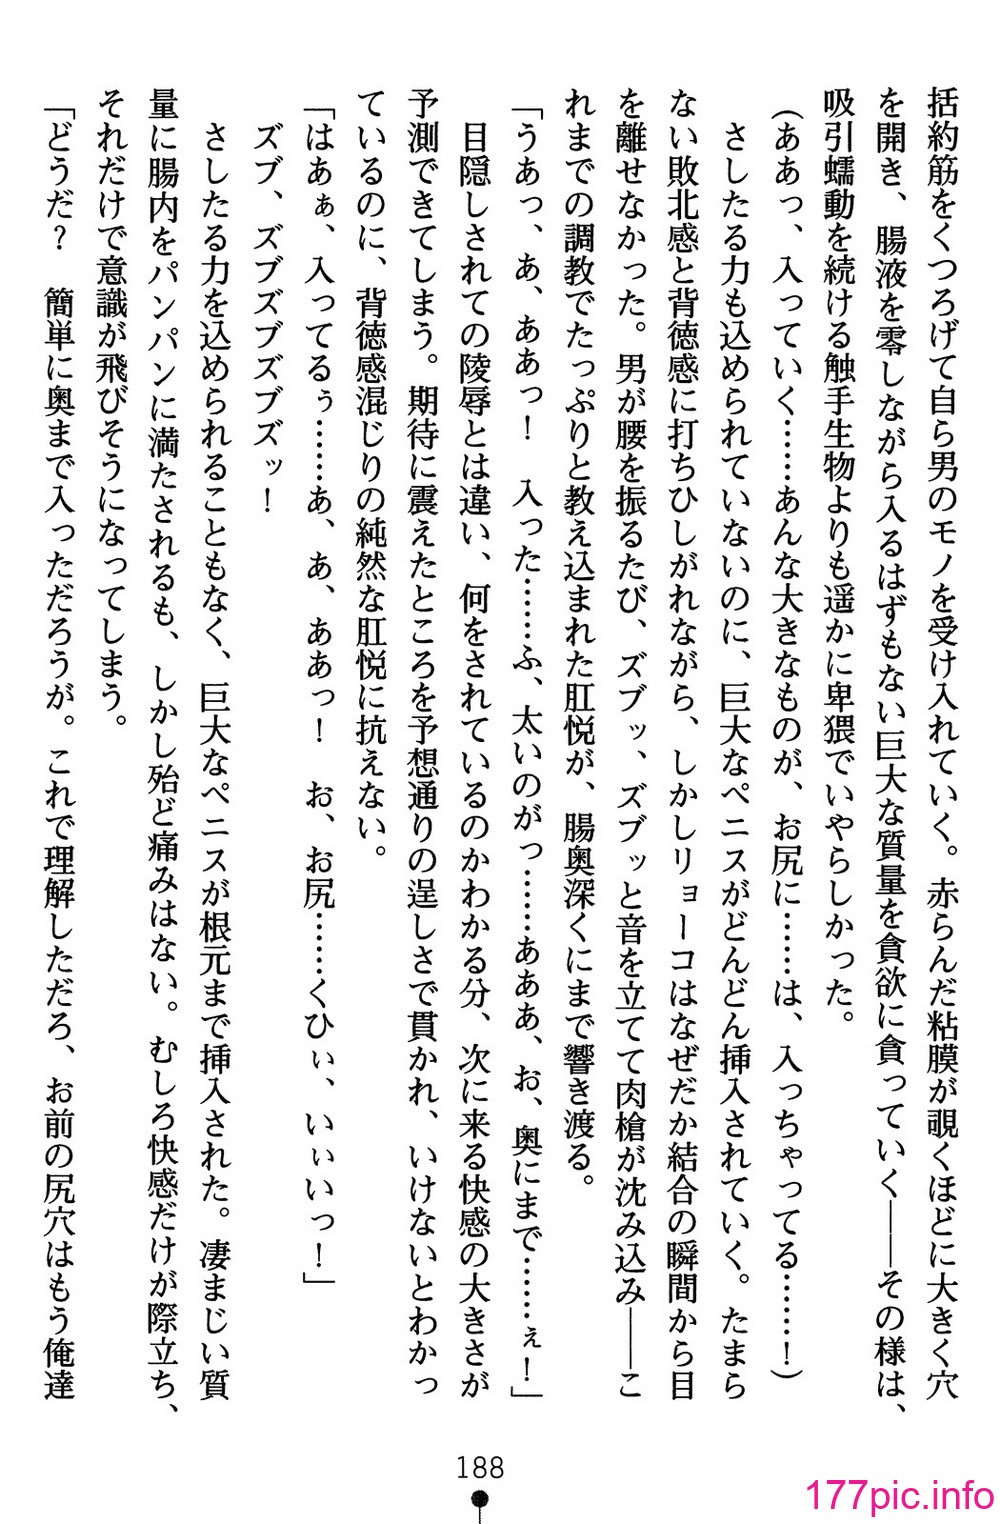 括約筋をくつろげて自ら男のモノを受け入れていく。赤らんだ粘膜が覗くほどに大きく穴
を開き、腸液を零しながら入るはずもない巨大な質量を貪欲に貪っていく――その様は、
吸引蠕動を続ける触手生物よりも遥かに卑猥でいやらしかった。
(ああっ、入っていく……あんな大きなものが、お尻に……は、入っちゃってる……！)
さしたる力も込められていないのに、巨大なペニスがどんどん挿入されていく。たまら
ない敗北感と背徳感に打ちひしがれながら、しかしリョーコはなぜだか結合の瞬間から目
を離せなかった。男が腰を振るたび、ズブッ、ズブッと音を立てて肉槍が沈み込み――こ
れまでの調教でたっぷりと教え込まれた肛悦が、腸奥深くにまで響き渡る。
「うあっ、あ、ああっ！　入った……ふ、太いのがっ……あああ、お、奥にまで……ぇ！」
目隠しされての陵辱とは違い、何をされているのかわかる分、次に来る快感の大きさが
予測できてしまう。期待に震えたところを予想通りの逞しさで貫かれ、いけないとわかっ
ているのに、背徳感混じりの純然な肛悦に抗えない。
「はあぁ、入ってるぅ……あ、あ、ああっ！　お、お尻……くひぃ、いぃいっ！」
ズブ、ズブズブズブズッ！
さしたる力を込められることもなく、巨大なペニスが根元まで挿入された。凄まじい質
量に腸内をパンパンに満たされるも、しかし殆ど痛みはない。むしろ快感だけが際立ち、
それだけで意識が飛びそうになってしまう。
「どうだ？　簡単に奥まで入っただろうが。これで理解しただろ、お前の尻穴はもう俺達
188
177pic.info